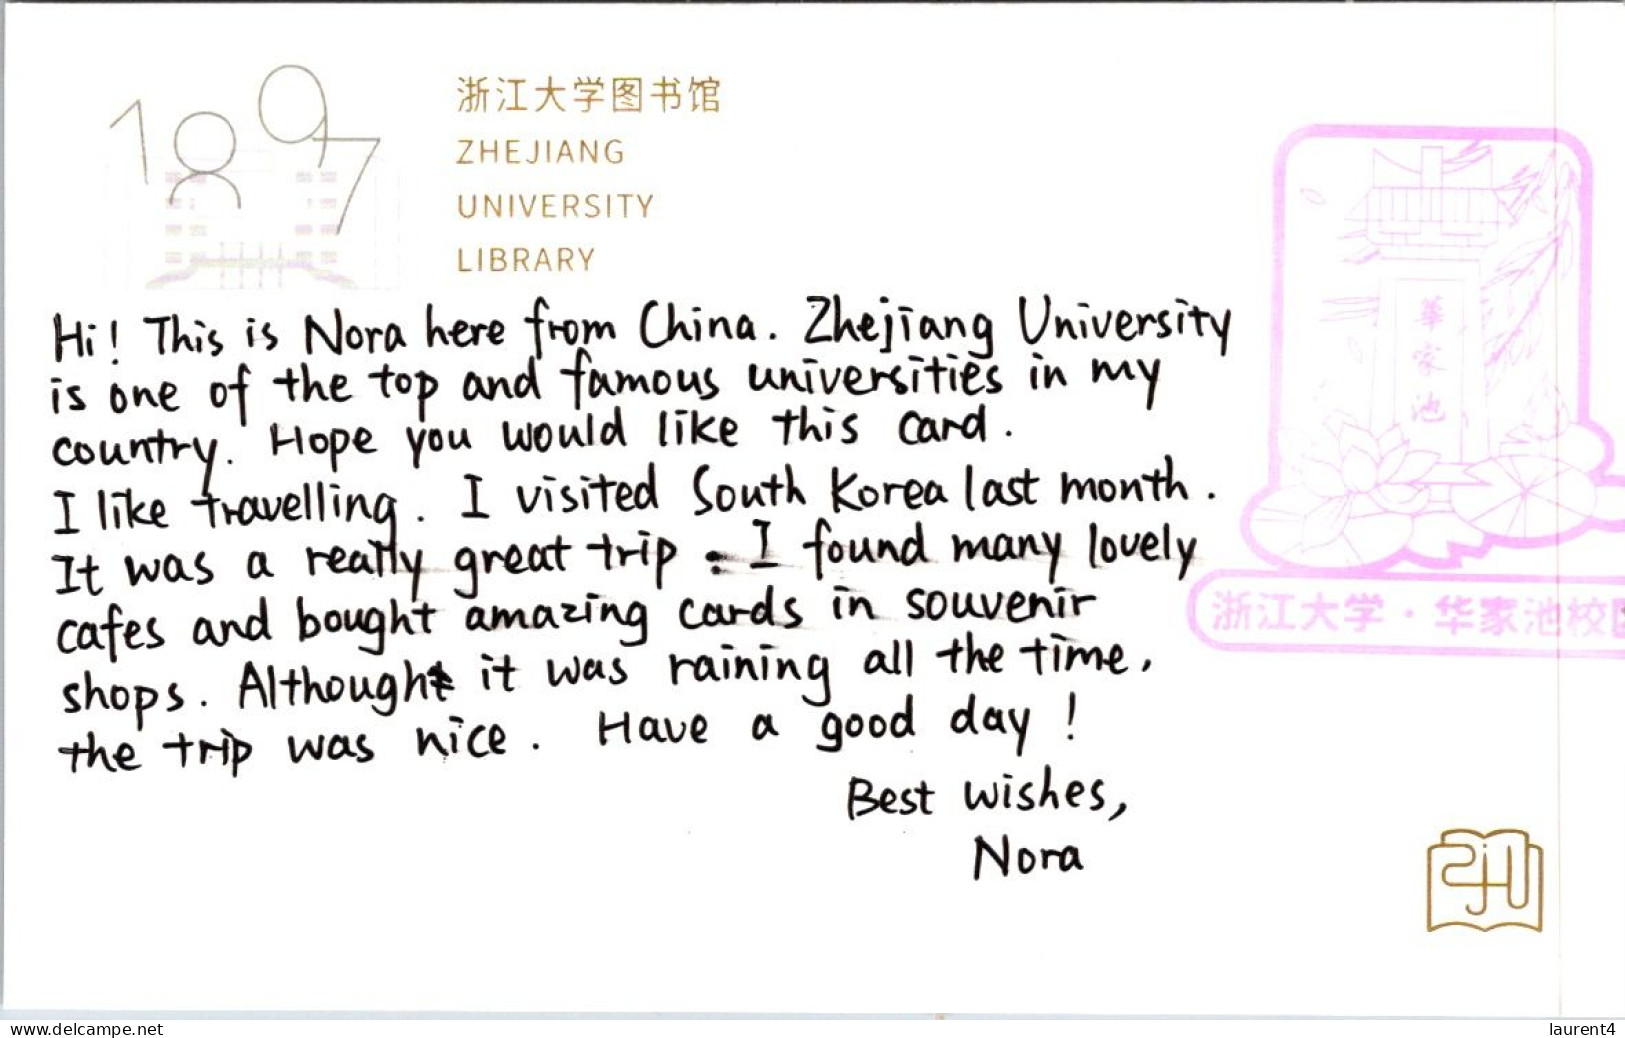 1897
浙江大学图书馆
ZHEJIANG
UNIVERSITY
LIBRARY
華家池
浙江大学·华家池校区
Hi! This is Nora here from China. Zhejiang University
is one of the top and famous universities in my
country. Hope you would like this card.
I like travelling. I visited South Korea last month.
It was a really great trip. I found many lovely
cafes and bought amazing cards in souvenir
shops. Although it was raining all the time,
the trip was nice. Have a good day!
Best wishes,
Nora
ZJU
www.delcampe.net
laurent4